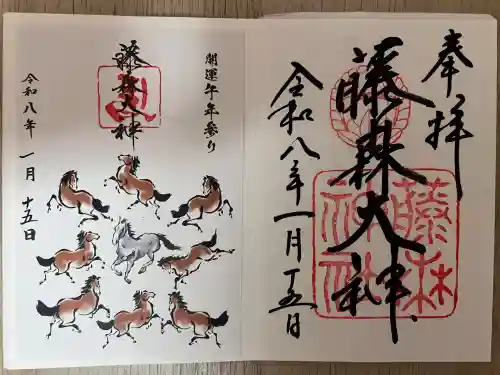 奉拝
藤森大神
令和八年一月十五日
藤森神社
開運午年参り
藤森大神
令和八年 一月 十五日